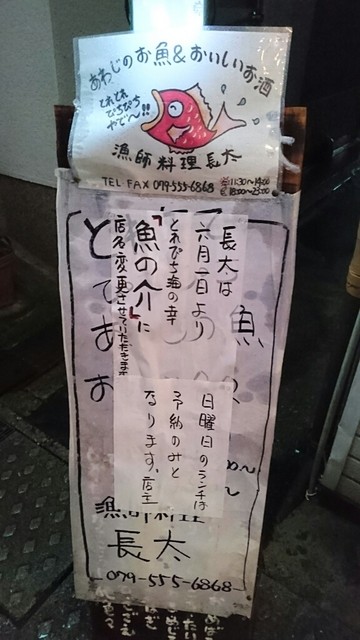 あわじのお魚&おいしいお酒
とれとれ
ぴちぴち
やで〜!!
漁師料理 長太
TEL・FAX 079-555-6868
11:30~14:00
18:00~23:00
長太は
六月一日より
とれぴち海の幸
「魚の介」に
店名変更させていただきます
日曜日のランチは
予約のみと
なります。店主
魚
漁師料理
長太
079-555-6868